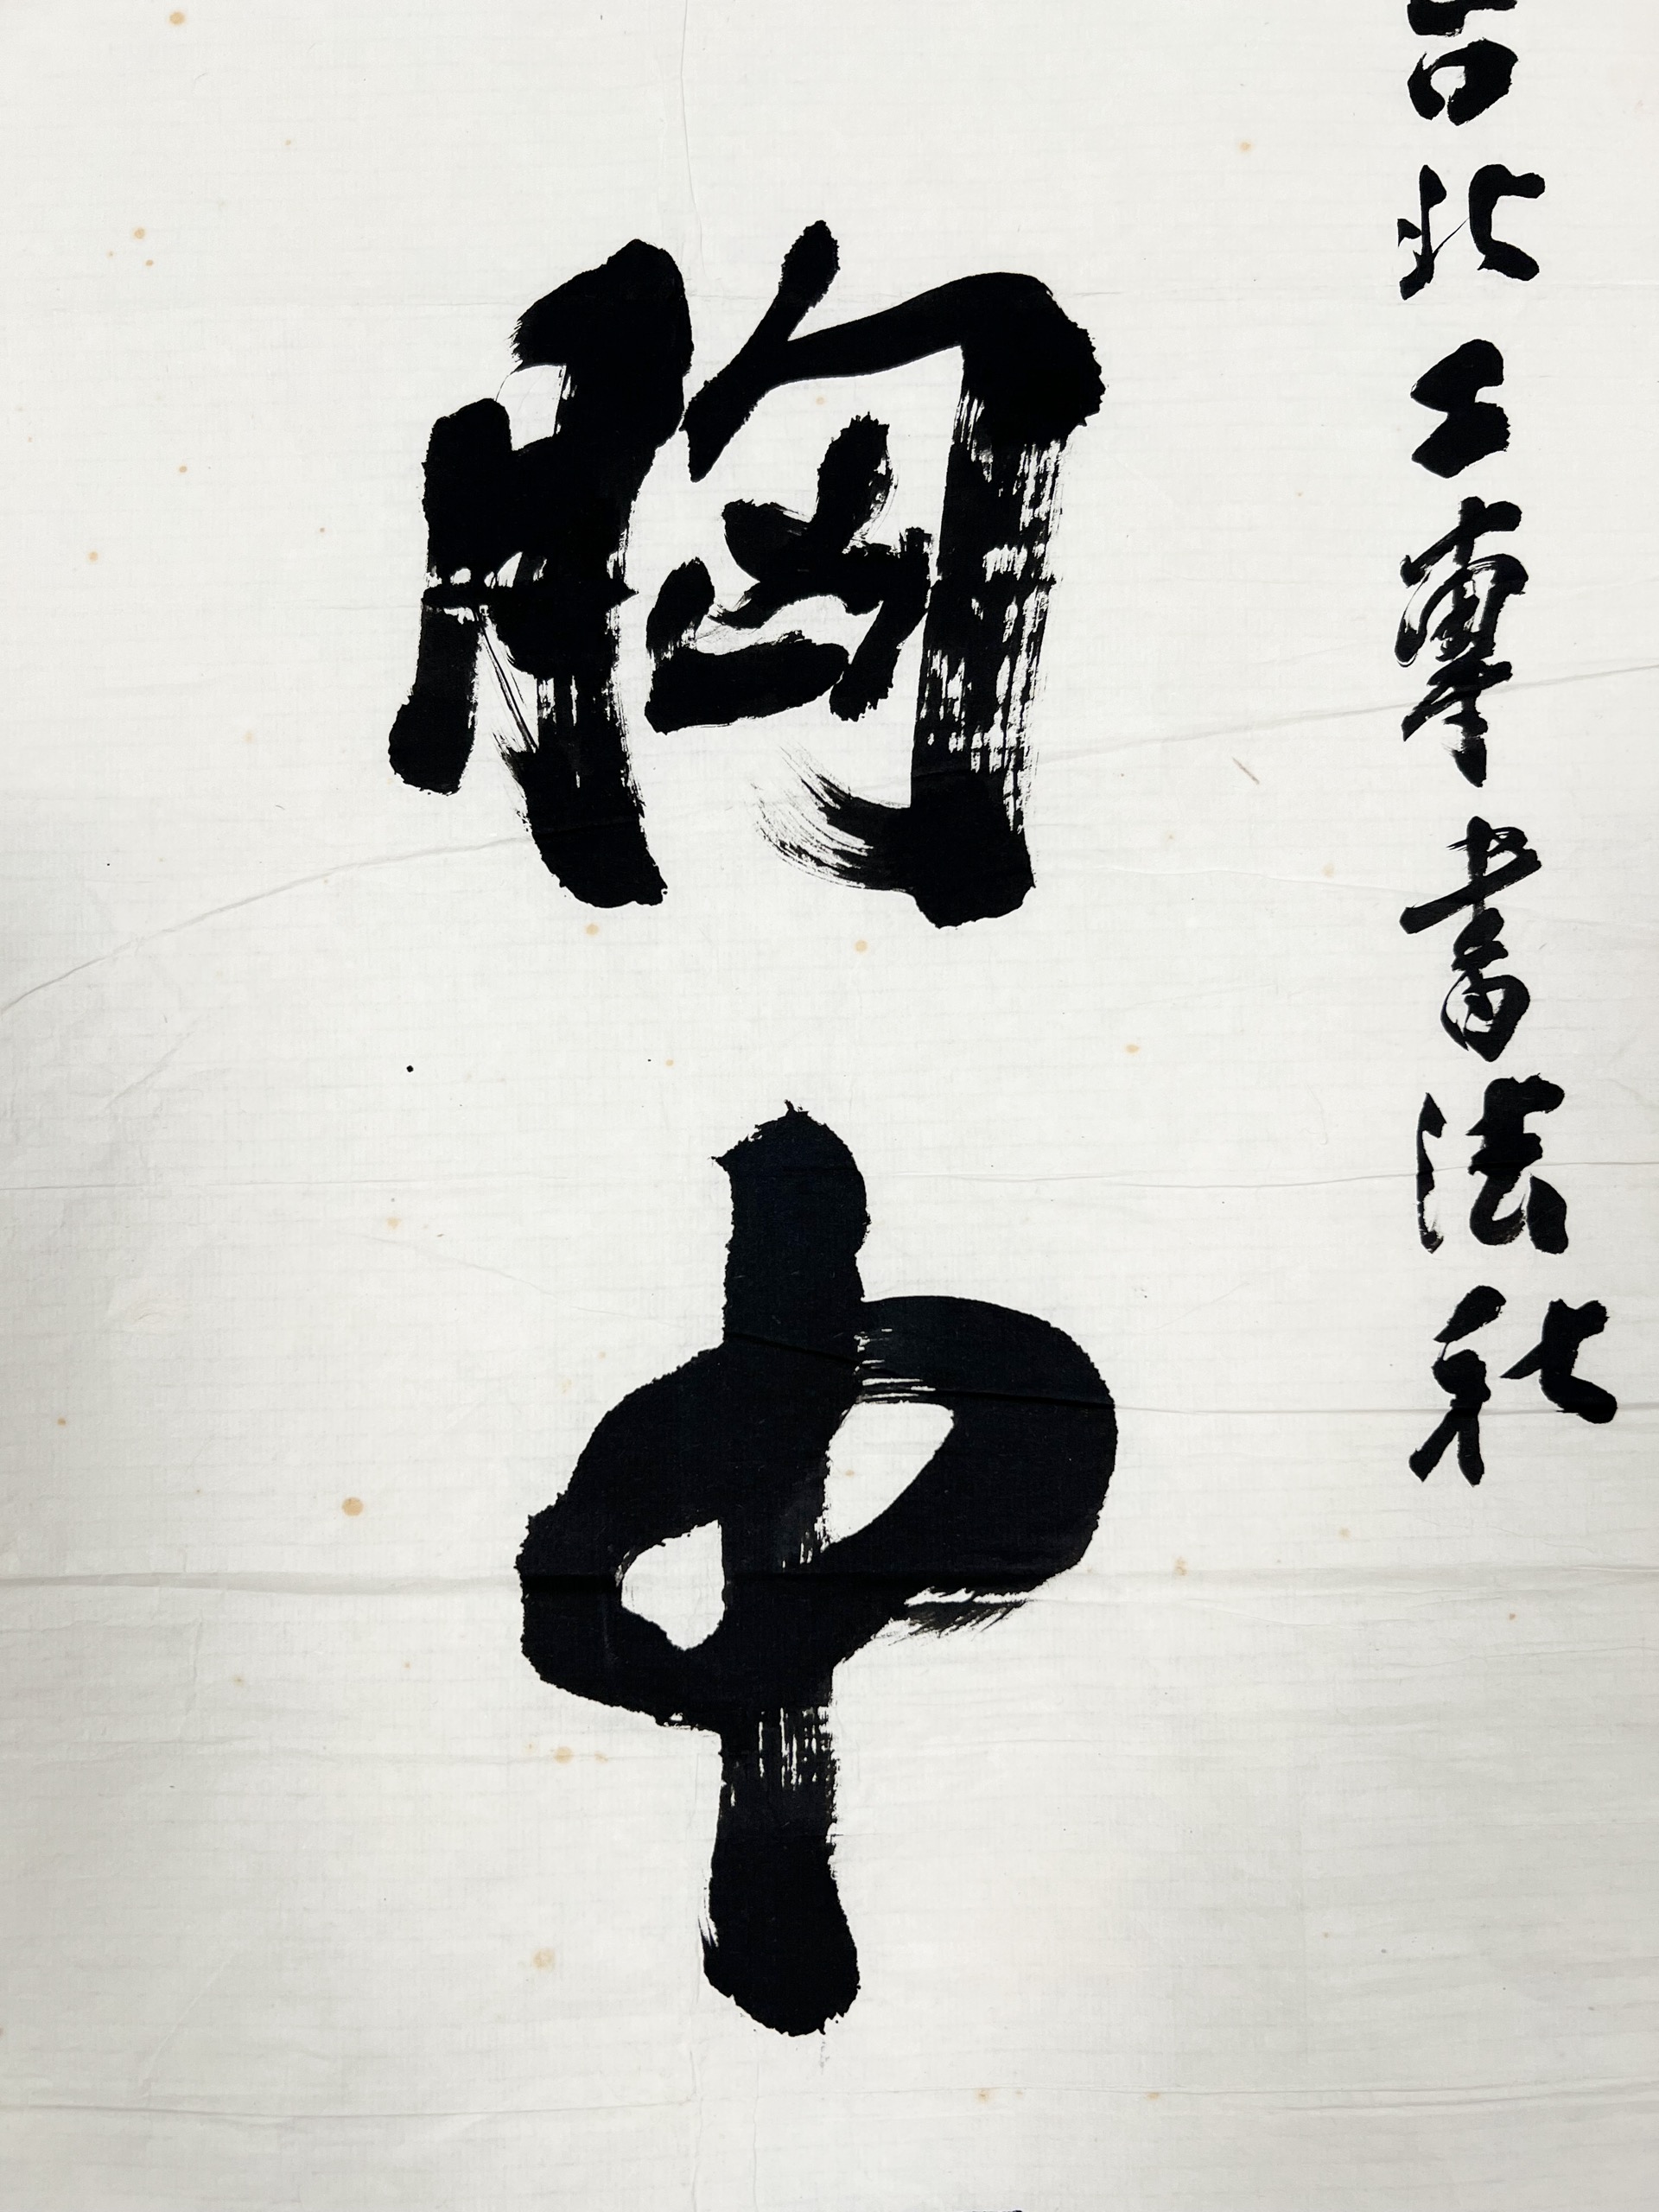 台北工專書法社
胸中